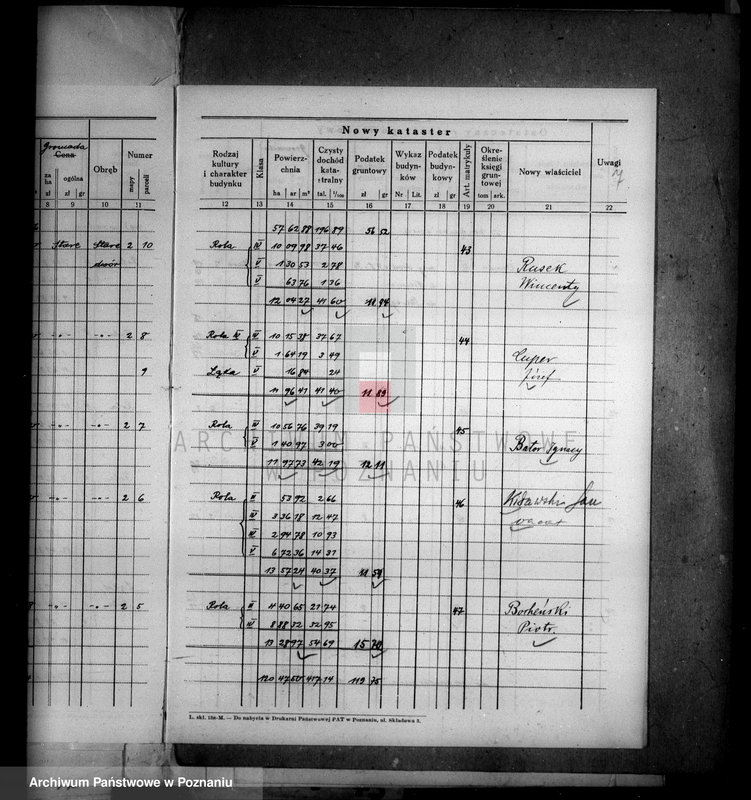 Nowy kataster
Gromada
Cena
za ha
ogólna
zł
zł gr
Obręb
Numer
mapy
parceli
Rodzaj kultury i charakter budynku
Klasa
Powierzchnia
ha ar m²
Czysty dochód katastralny
tal. 1/100
Podatek gruntowy
zł gr
Wykaz budynków
Nr Lit.
Podatek budynkowy
zł gr
Art. matrykuły
Określenie księgi gruntowej
tom ark.
Nowy właściciel
Uwagi
7
8 9 10 11 12 13 14 15 16 17 18 19 20 21 22
57 62 88 196 89 56 52
Stare Stare 2 10 Rola IV 10 09 98 37 46 43
dwór V 1 30 53 2 78 Rusek
V 63 76 1 36 Wincenty
12 04 27 41 60 11 94
-"- -"- 2 8 Rola IV 10 15 38 37 67 44
V 1 64 19 3 49 Cuper
9 Łąka V 16 84 24 Józef
11 96 41 41 40 11 89
-"- -"- 2 7 Rola IV 10 56 76 39 19 45
V 1 40 97 3 00 Bator Ignacy
11 97 73 42 19 12 11
-"- -"- 2 6 Rola II 53 92 2 66 46 Jan
III 3 36 18 12 47
IV 2 94 78 10 93
V 6 72 36 14 31
13 57 24 40 37 11 59
-"- -"- 2 5 Rola II 4 40 65 21 74 47 Bocheński
III 8 88 32 32 95 Piotr
13 28 97 54 69 15 70
120 47 50 417 14 119 75
L. skl. 13a-M. — Do nabycia w Drukarni Państwowej PAT w Poznaniu, ul. Składowa 3.
ARCHIWUM PAŃSTWOWE
W POZNANIU
Archiwum Państwowe w Poznaniu